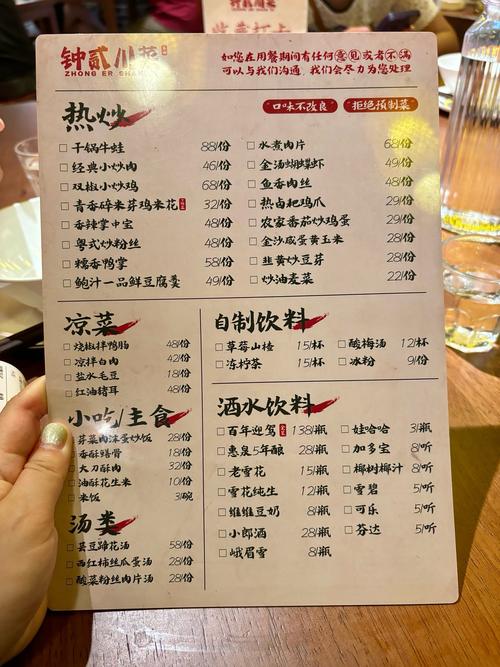 钟贰川菜
ZHONG ER
如您在用餐期间有任何意见或者不满
可以与我们沟通，我们会尽力为您处理
热炒
口味不改良 拒绝预制菜
□ 干锅牛蛙 88/份
□ 经典小炒肉 46/份
□ 双椒小炒鸡 68/份
□ 青香碎米芽鸡米花 32/份
□ 香辣掌中宝 48/份
□ 粤式炒粉丝 48/份
□ 糯香鸭掌 58/份
□ 鲍汁一品鲜豆腐羹 49/份
□ 水煮肉片 68/份
□ 金汤蝴蝶虾 49/份
□ 鱼香肉丝 48/份
□ 热卤粑鸡爪 29/份
□ 农家番茄炒鸡蛋 29/份
□ 金沙咸蛋黄玉米 28/份
□ 韭黄炒豆芽 28/份
□ 炒油麦菜 22/份
凉菜
□ 烧椒拌鸭肠 48/份
□ 凉拌白肉 42/份
□ 盐水毛豆 18/份
□ 红油猪耳 48/份
小吃/主食
芽菜肉沫蛋炒饭 28/份
□ 香酥鳝骨 18/份
□ 大刀酥肉 32/份
□ 油酥花生米 10/份
□ 米饭 3/碗
汤类
□ 芸豆蹄花汤 58/份
□ 西红柿丝瓜蛋汤 28/份
□ 酸菜粉丝肉片汤 28/份
自制饮料
□ 草莓山楂 15/杯
□ 冻柠茶 15/杯
□ 酸梅汤 12/杯
□ 冰粉 9/份
酒水饮料
□ 百年迎驾 138/瓶
□ 惠泉5年酿 28/瓶
□ 老雪花 15/瓶
□ 雪花纯生 12/瓶
□ 维维豆奶 8/瓶
□ 小郎酒 28/瓶
□ 峨眉雪 8/瓶
□ 娃哈哈 3/瓶
□ 加多宝 8/听
□ 椰树椰汁 8/听
□ 雪碧 5/听
□ 可乐 5/听
□ 芬达 5/听